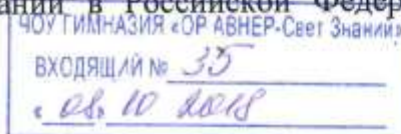 ании в Российской Федер
ЧОУ ГИМНАЗИЯ «ОР АВНЕР-Свет Знаний»
ВХОДЯЩИЙ № 35
« 08 » 10 2018